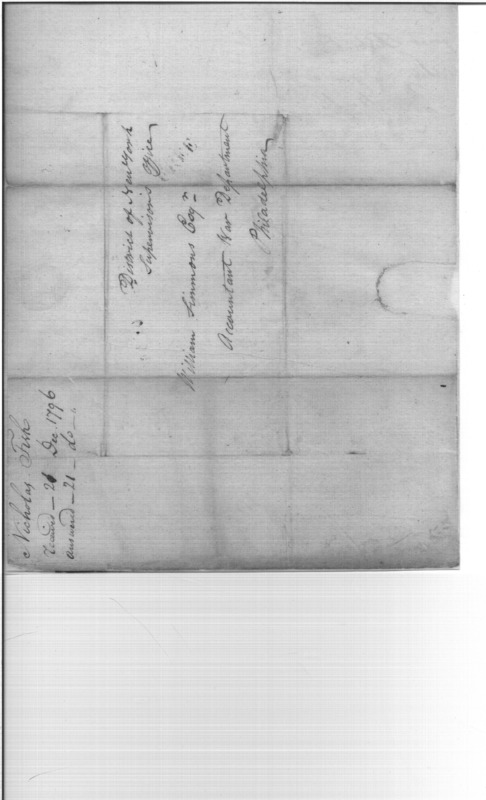 District of New York
Supervisor's Office
William Simmons Esqr
Accountant War Department
Philadelphia
Nicholas Fish
Received — 21 Dec. 1796
answered — 21 — do —